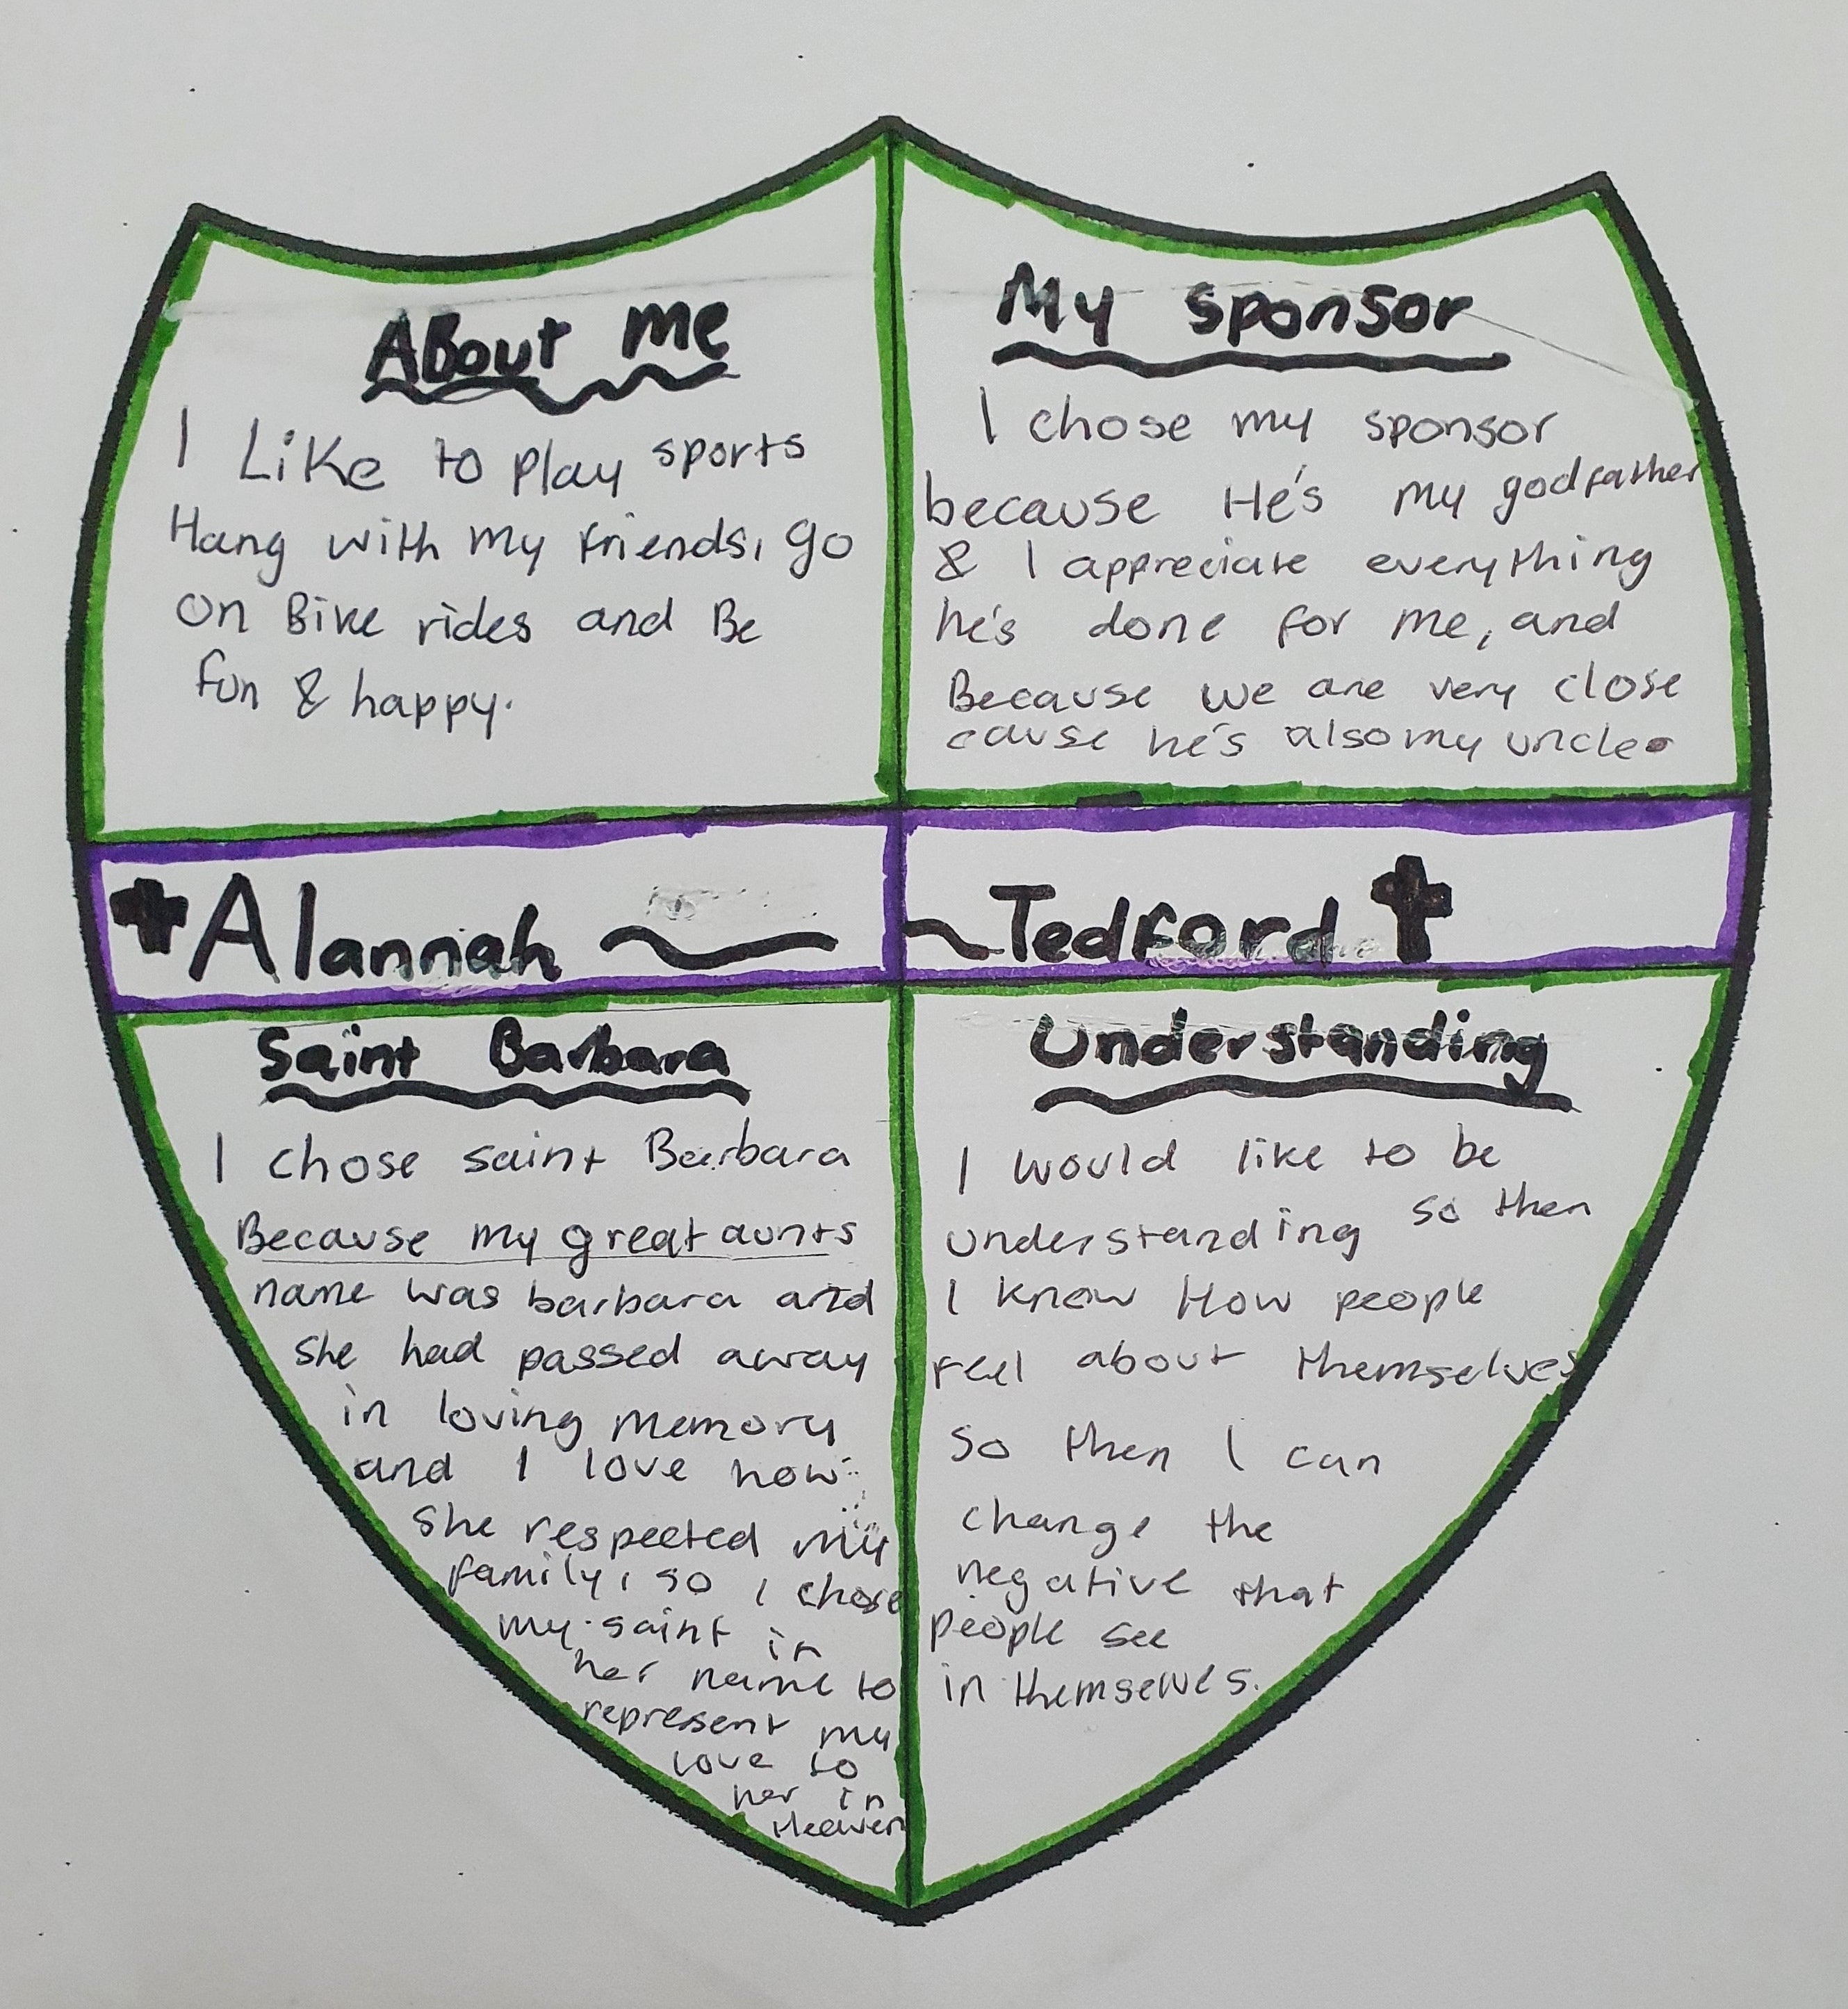 About Me
I Like to play sports
Hang with my friends, go
on Bike rides and Be
fun & happy.
My sponsor
I chose my sponsor
because He's my godfather
& I appreciate everything
he's done for me, and
Because we are very close
cause he's also my uncle.
Alannah ~ ~ Tedford
Saint Barbara
I chose saint Barbara
Because my great aunts
name was barbara and
she had passed away
in loving memory
and I love how
she respected my
family, so I chose
my saint in
her name to
represent my
love to
her in
Heaven
Understanding
I would like to be
understanding so then
I know How people
feel about themselves
so then I can
change the
negative that
people see
in themselves.